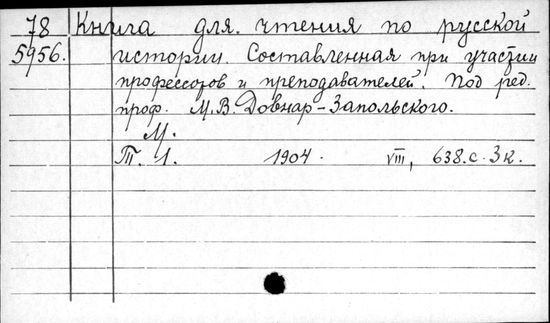 78 Книга для чтения по русской
5956. истории. Составленная при участии
профессоров и преподавателей. Под ред.
проф. М.В. Довнар-Запольского.
М.
Т. 1. 1904. VIII, 638.с. 3 к.